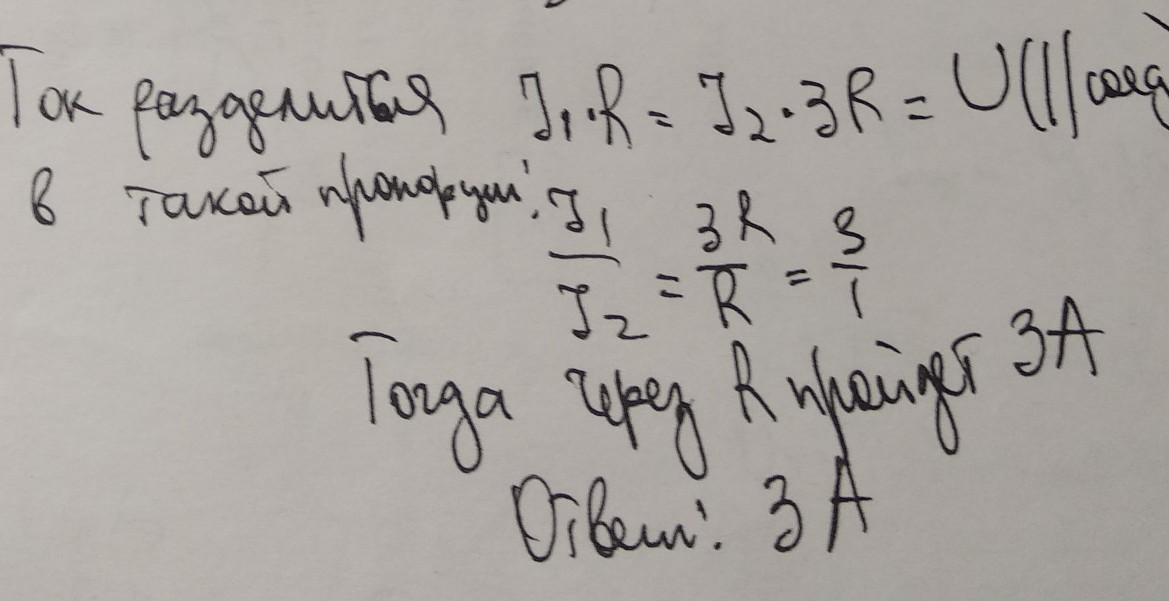 Ток разделится J₁·R = J₂·3R = U(|| соед)
в такой пропорции: J₁/J₂ = 3R/R = 3/1
Тогда через R пройдет 3А
Ответ: 3 А